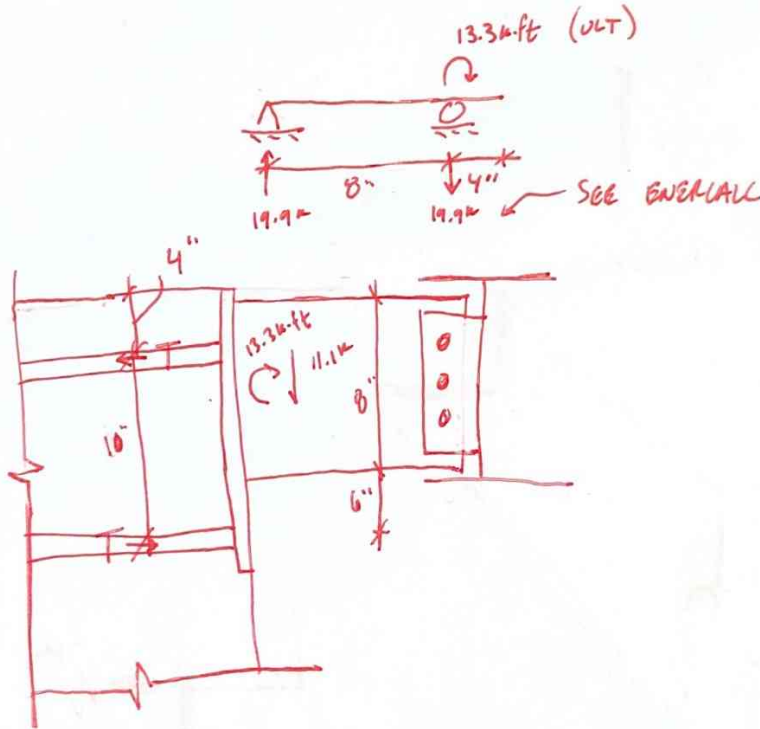 13.3k·ft (ULT)
8"
4"
19.9k
19.9k
SEE ENERCALC
4"
13.3k·ft
11.1k
8"
10"
T
T
6"